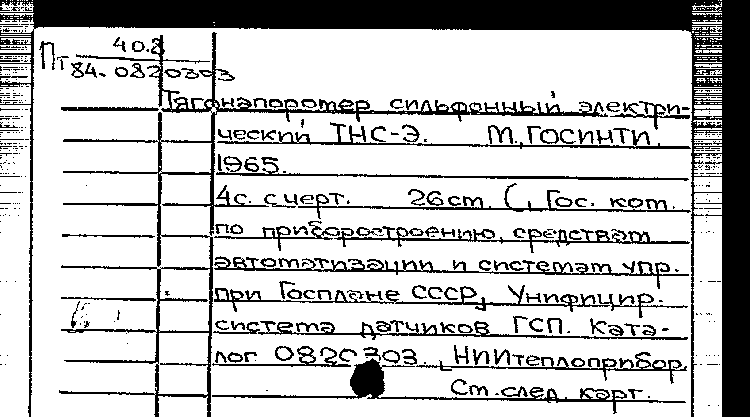 Пт 40.8
84. 0820303
Тягонапоромер сильфонный электри-
ческий ТНС-Э. М., ГОСИНТИ.
1965.
4с. с черт. 26 см. (, Гос. ком.
по приборостроению, средствам
автоматизации и системам упр.
при Госплане СССР, Унифицир.
система датчиков ГСП. Ката-
лог 0820303., НИИтеплоприбор.
См. след. карт.